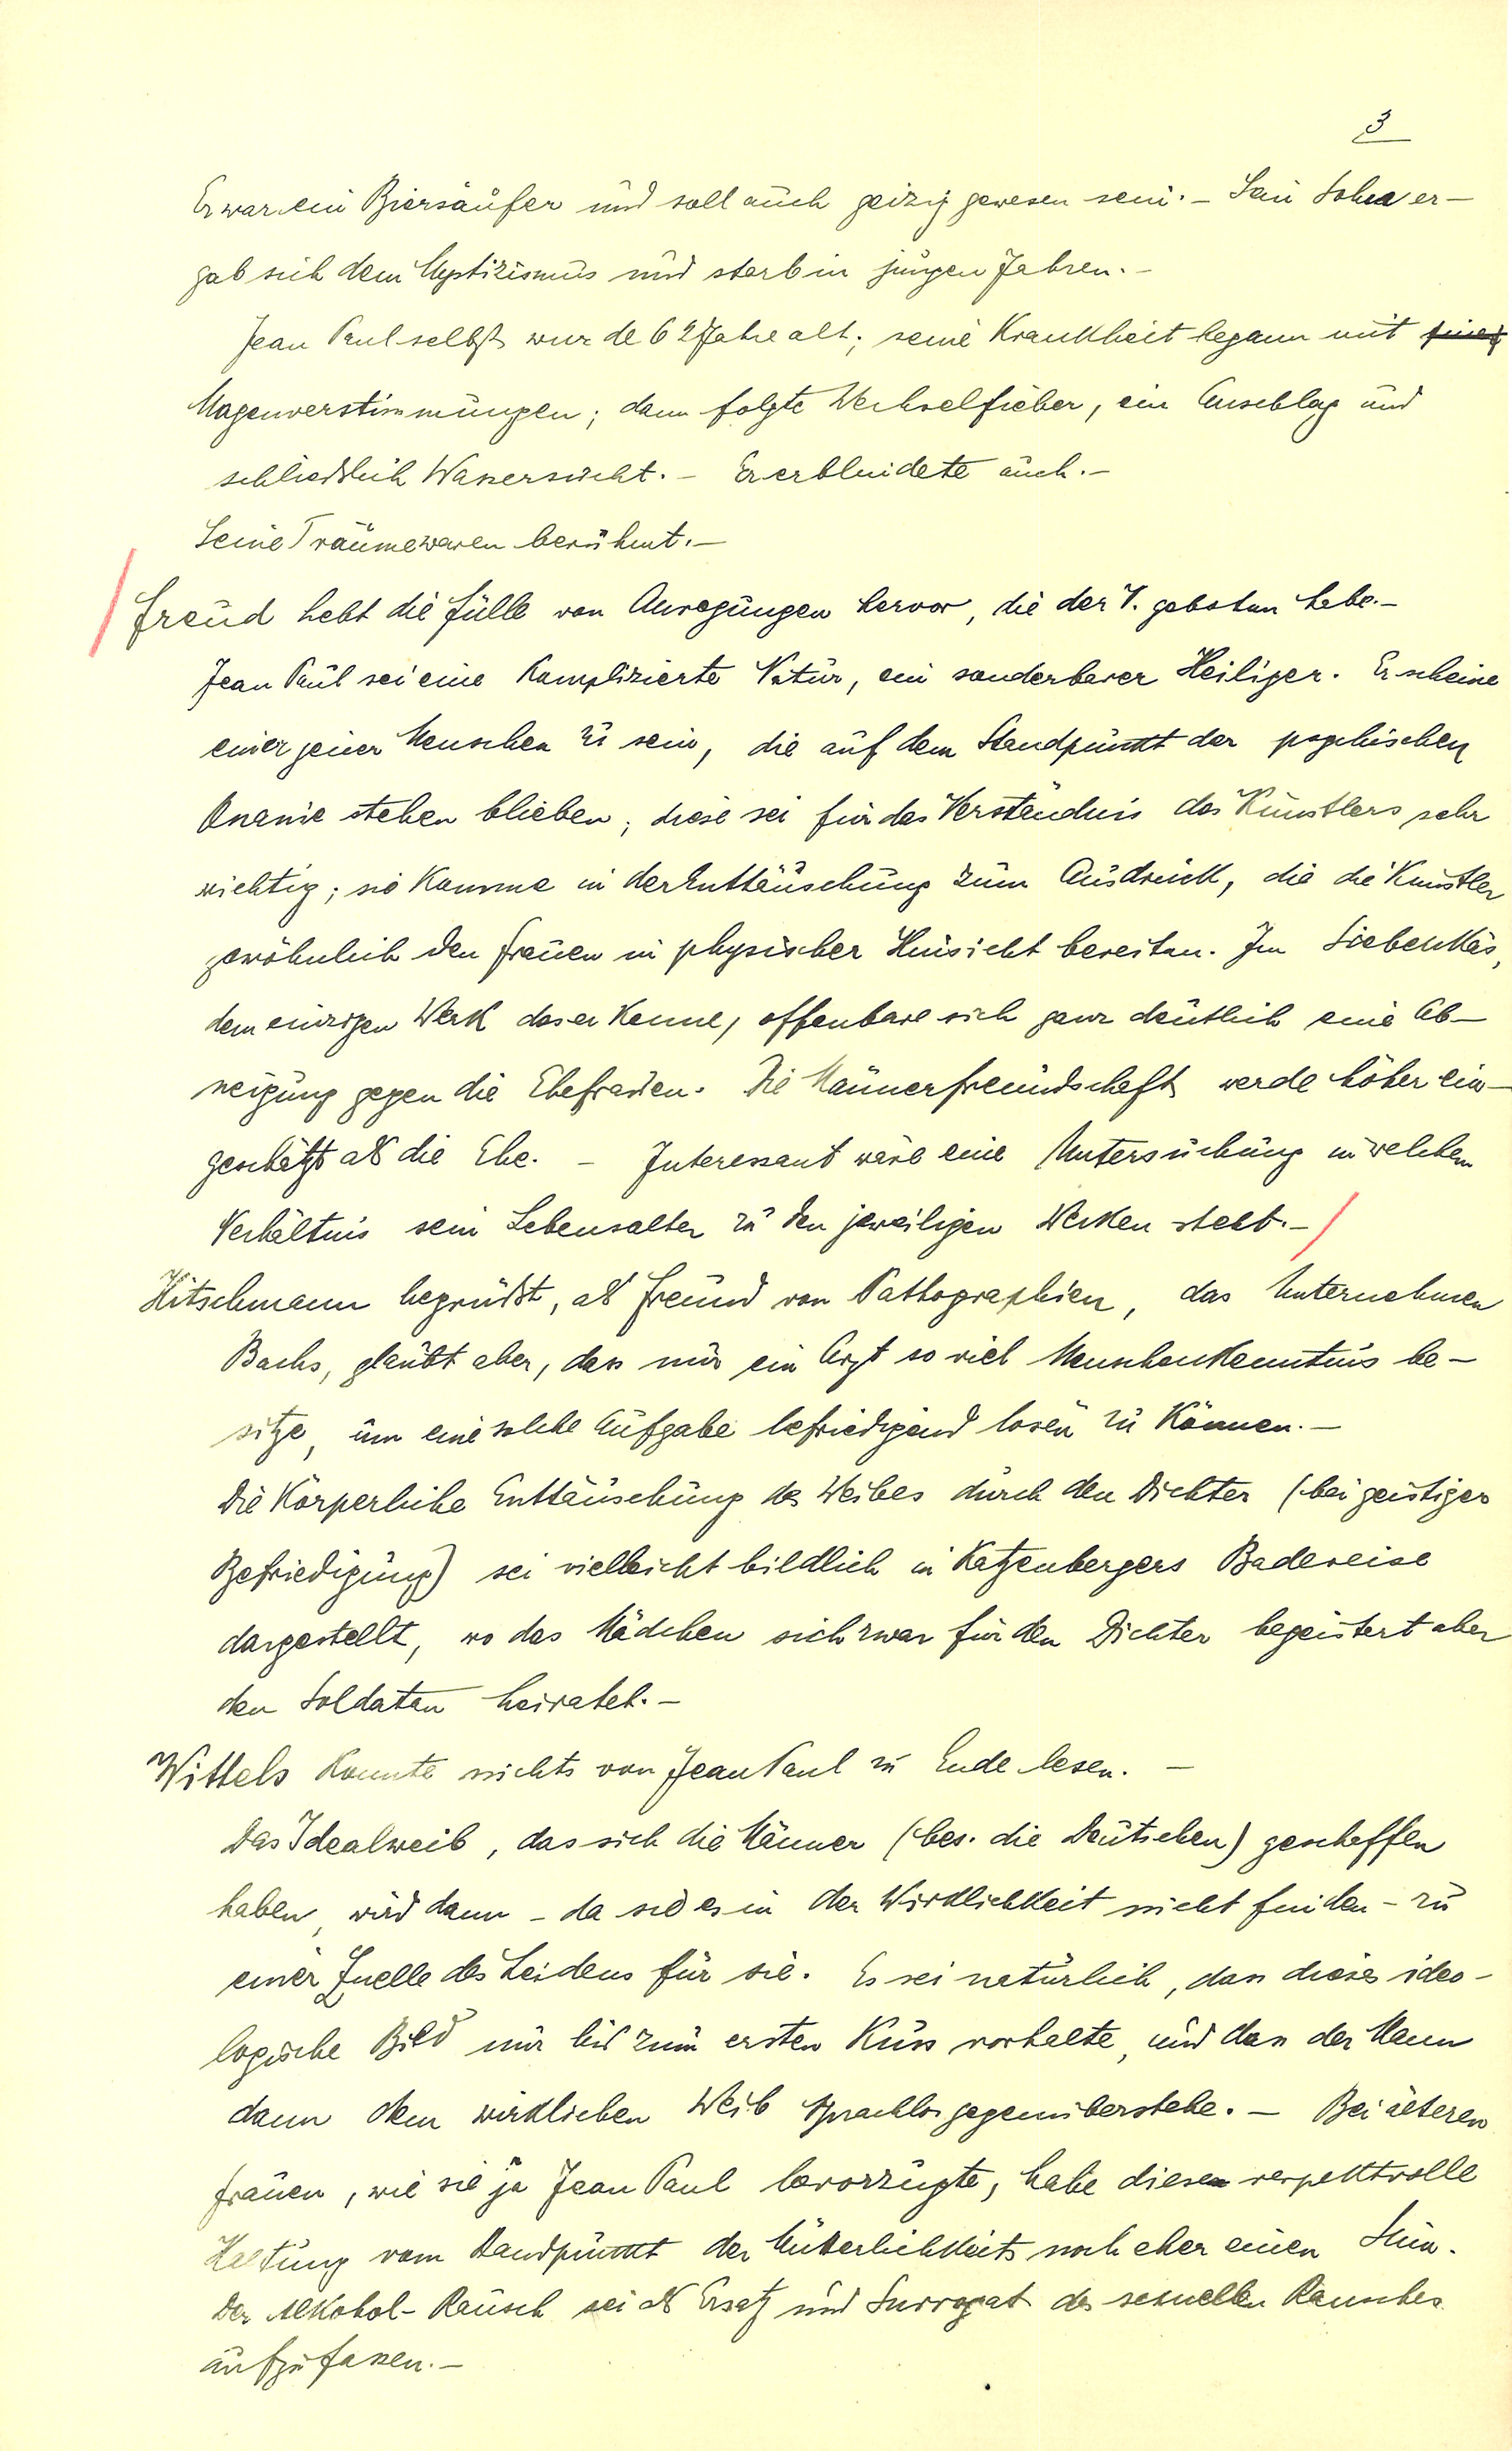 3
Er war ein Biersäufer und soll auch geizig gewesen sein. – Sein Sohn er-
gab sich dem Mystizismus und starb in jungen Jahren. –
Jean Paul selbst wurde 62 Jahre alt; seine Krankheit begann mit
Magenverstimmungen; dann folgte Wechselfieber, ein Ausschlag und
schließlich Wassersucht. – Er erblindete auch. –
Seine Träume waren berühmt. –
Freud hebt die Fülle von Anregungen hervor, die der V. geboten habe. –
Jean Paul sei eine komplizierte Natur, ein sonderbarer Heiliger. Er scheine
einer jener Menschen zu sein, die auf dem Standpunkt der psychischen
Onanie stehen blieben; diese sei für das Verständnis des Künstlers sehr
wichtig; sie komme in der Enttäuschung zum Ausdruck, die die Künstler
gewöhnlich den Frauen in physischer Hinsicht bereiten. Im Siebenkäs,
dem einzigen Werk das er kenne, offenbare sich ganz deutlich eine Ab-
neigung gegen die Ehefrauen. Die Männerfreundschaft werde höher ein-
geschätzt als die Ehe. – Interessant wäre eine Untersuchung in welchem
Verhältnis sein Lebensalter zu den jeweiligen Werken steht. –
Hitschmann begrüßt, als Freund von Pathographien, das Unternehmen
Bachs, glaubt aber, dass nur ein Arzt so viel Menschenkenntnis be-
sitze, um eine solche Aufgabe befriedigend lösen zu können. –
Die körperliche Enttäuschung des Weibes durch den Dichter (bei geistiger
Befriedigung) sei vielleicht bildlich in Katzenbergers Badereise
dargestellt, wo das Mädchen sich zwar für den Dichter begeistert aber
den Soldaten heiratet. –
Wittels konnte nichts von Jean Paul zu Ende lesen. –
Das Idealweib, das sich die Männer (bes. die Deutschen) geschaffen
haben, wird dann – da sie es in der Wirklichkeit nicht finden – zu
einer Quelle des Leidens für sie. Es sei natürlich, dass dieses ideo-
logische Bild nur bis zum ersten Kuss vorhalte, und dass der Mann
dann dem wirklichen Weib sprachlos gegenüberstehe. – Bei älteren
Frauen, wie sie ja Jean Paul bevorzugte, habe diese respektvolle
Haltung vom Standpunkt der Mütterlichkeit noch eher einen Sinn.
Der Alkohol-Rausch sei als Ersatz und Surrogat des sexuellen Rausches
aufzufassen. –